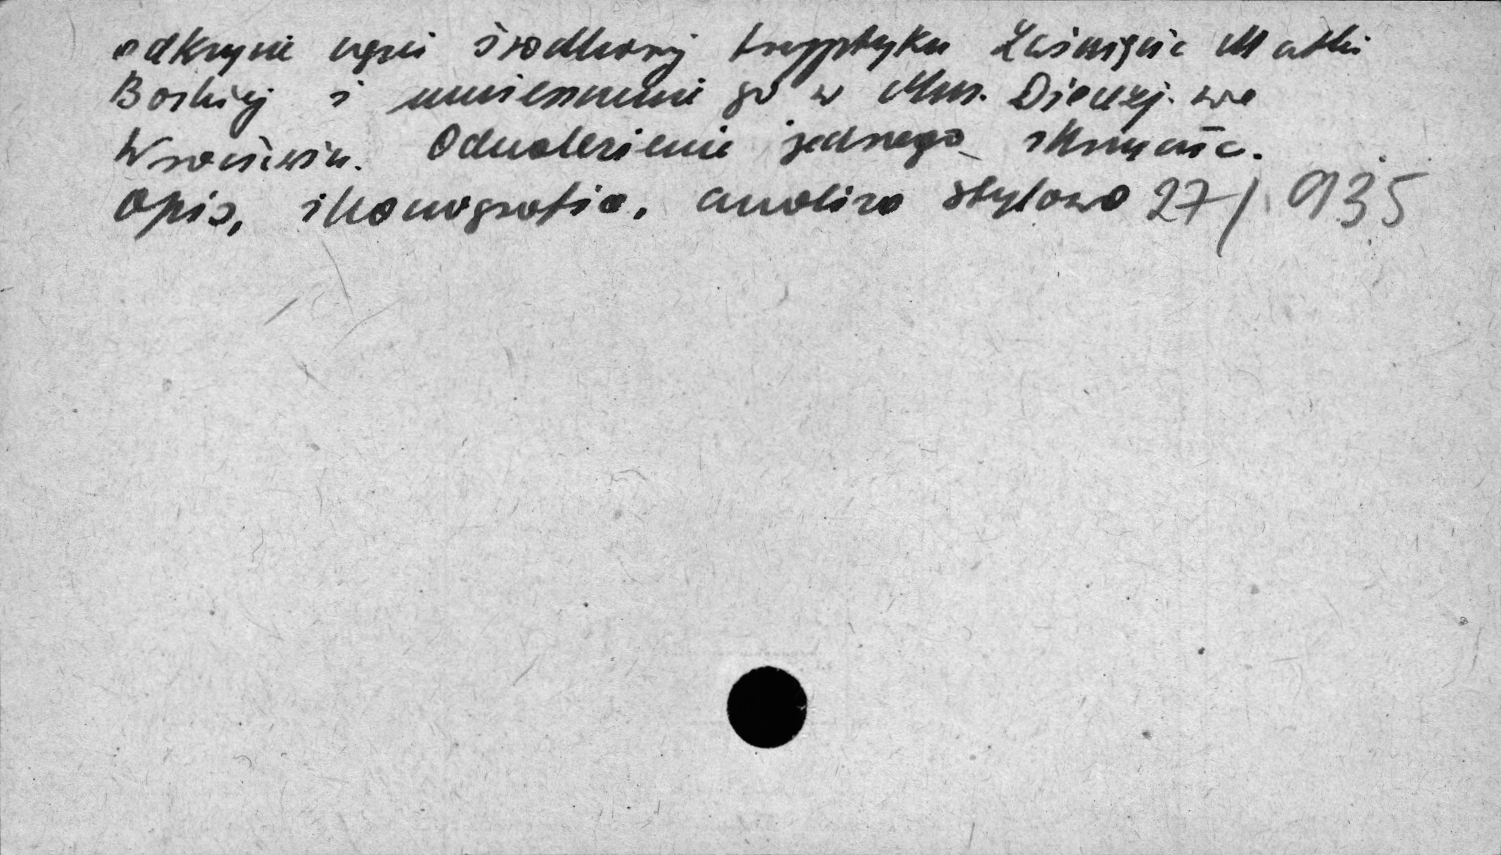 odkrycie części środkowej tryptyku Zaśnięcie Matki
Boskiej i umieszczenie go w Muz. Diecezj. we
Wrocławiu. Odnalezienie jednego skrzydła.
Opis, ikonografia, analiza stylowa 27/935